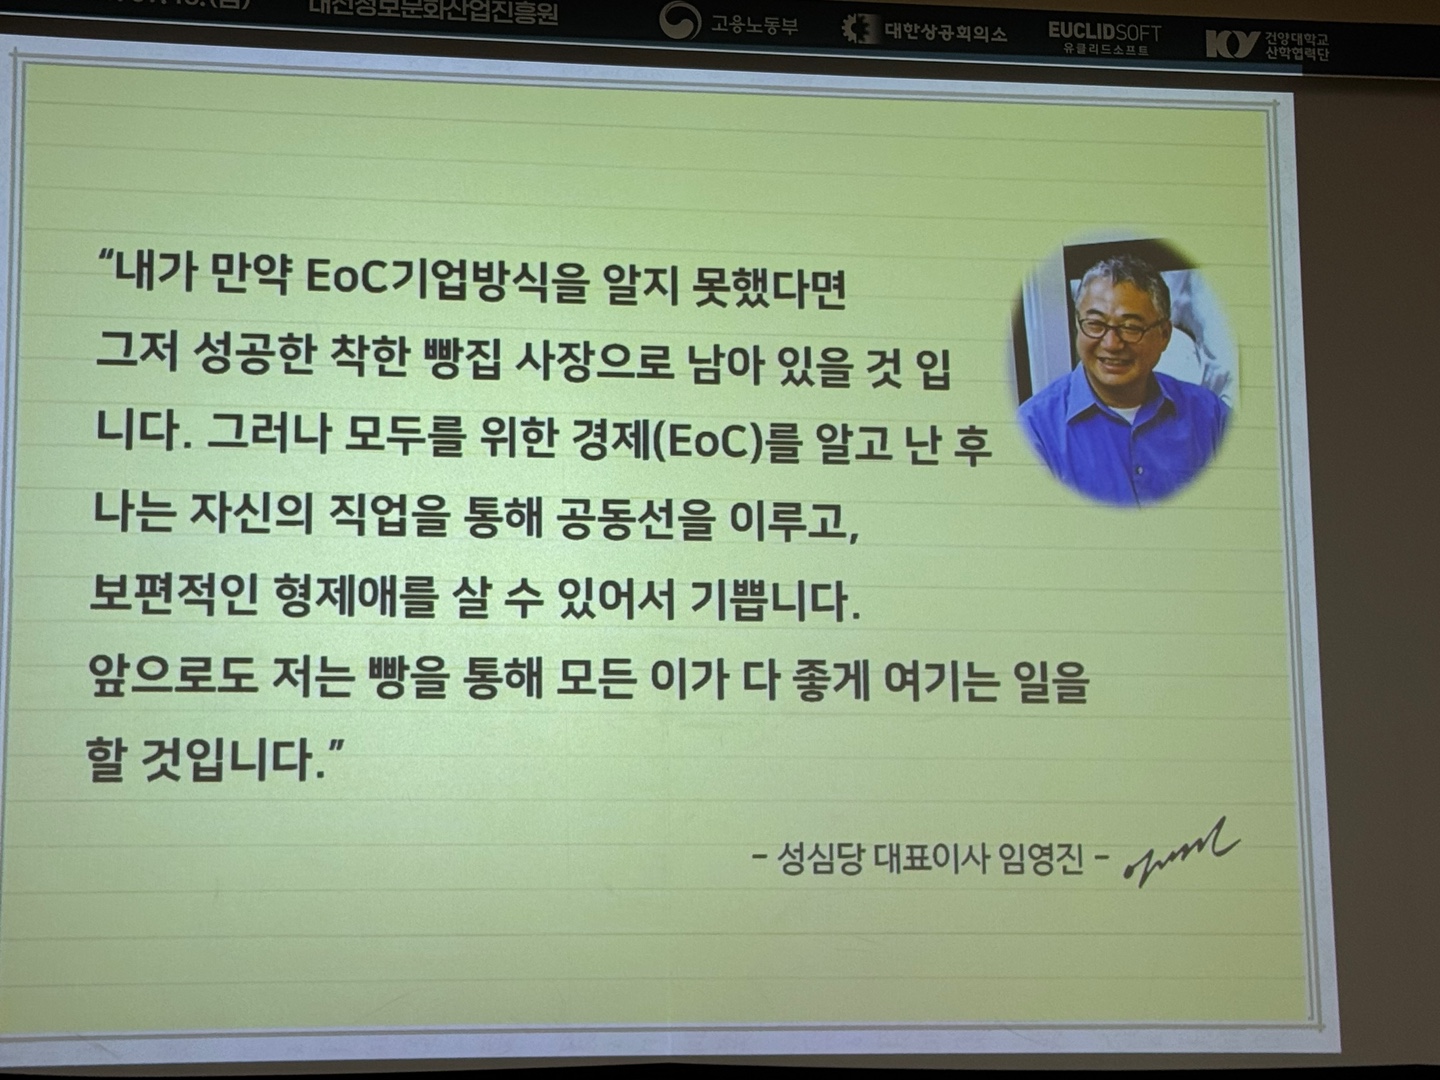 대전정보문화산업진흥원
고용노동부
대한상공회의소
EUCLIDSOFT
유클리드소프트
KY
건양대학교
산학협력단
“내가 만약 EoC기업방식을 알지 못했다면
그저 성공한 착한 빵집 사장으로 남아 있을 것 입
니다. 그러나 모두를 위한 경제(EoC)를 알고 난 후
나는 자신의 직업을 통해 공동선을 이루고,
보편적인 형제애를 살 수 있어서 기쁩니다.
앞으로도 저는 빵을 통해 모든 이가 다 좋게 여기는 일을
할 것입니다.”
- 성심당 대표이사 임영진 -